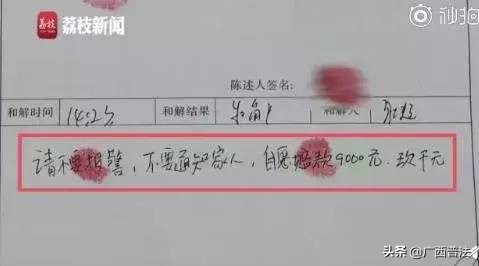 荔枝新闻
秒拍
陈述人签名:
和解时间 14:25 和解结果 和解人
请不要报警,不要通知家人,自愿赔款9000元.玖千元
头条 @广西普法